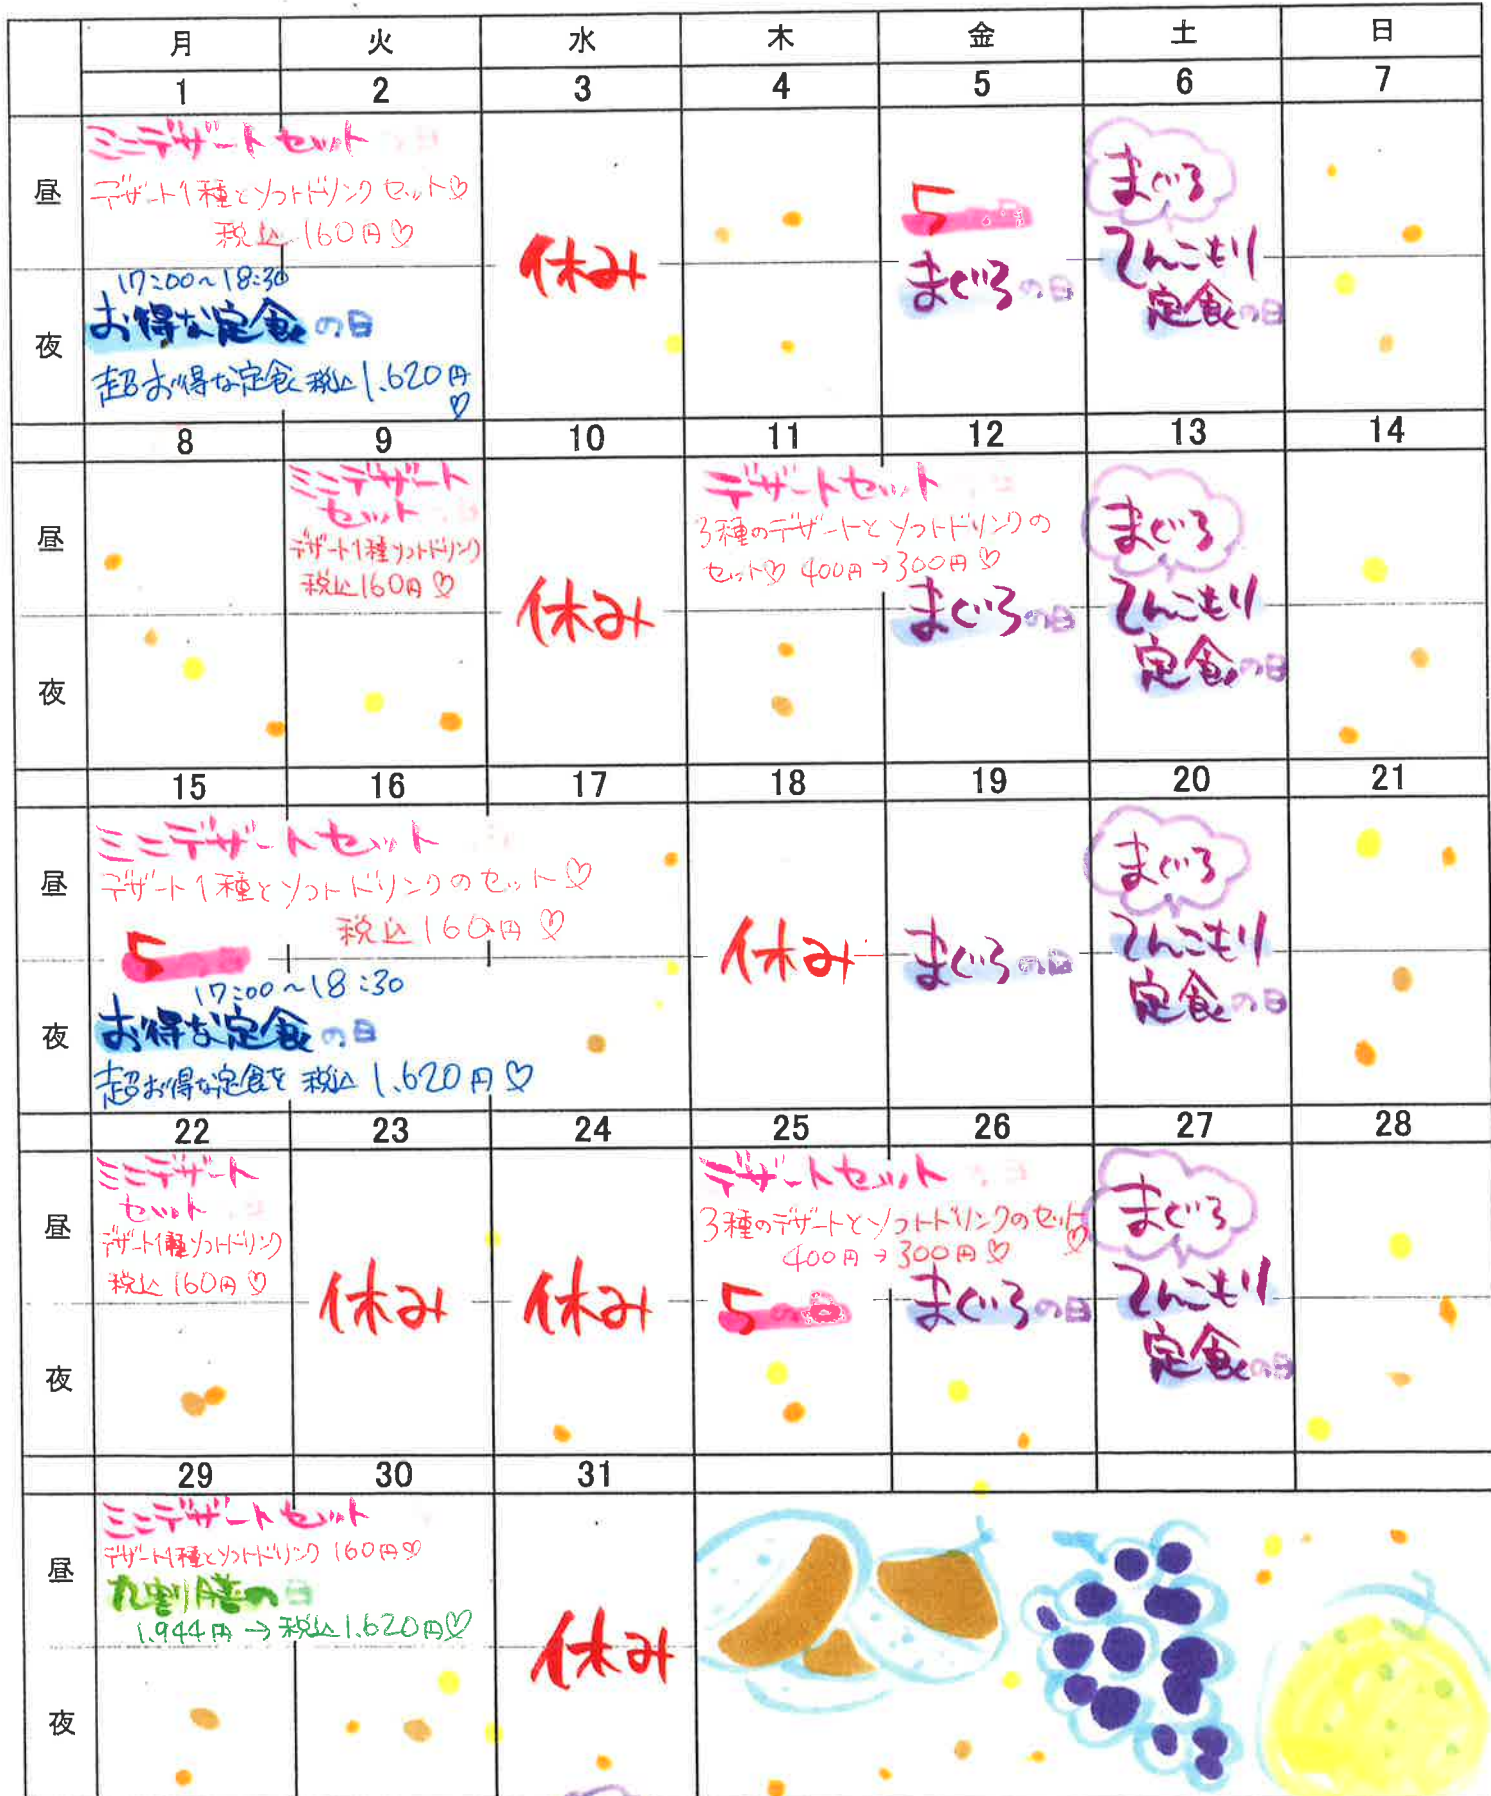 月 火 水 木 金 土 日
1 2 3 4 5 6 7
昼
ミニデザートセット
デザート1種とソフトドリンクセット♡
税込160円♡
夜
17:00～18:30
お得な定食の日
超お得な定食 税込1.620円
♡
休み
5
まぐろの日
まぐろ
てんこもり
定食の日
8 9 10 11 12 13 14
昼
夜
ミニデザート
セット
デザート1種ソフトドリンク
税込160円♡
休み
デザートセット
3種のデザートとソフトドリンクの
セット♡ 400円→300円♡
まぐろの日
まぐろ
てんこもり
定食の日
15 16 17 18 19 20 21
昼
ミニデザートセット
デザート1種とソフトドリンクのセット♡
税込160円♡
5
夜
17:00～18:30
お得な定食の日
超お得な定食を 税込1.620円♡
休み
まぐろの日
まぐろ
てんこもり
定食の日
22 23 24 25 26 27 28
昼
夜
ミニデザート
セット
デザート1種ソフトドリンク
税込160円♡
休み
休み
デザートセット
3種のデザートとソフトドリンクのセット
400円→300円♡ ♡
5の日
まぐろの日
まぐろ
てんこもり
定食の日
29 30 31
昼
ミニデザートセット
デザート1種とソフトドリンク 160円♡
九割膳の日
1.944円→税込1.620円♡
夜
休み